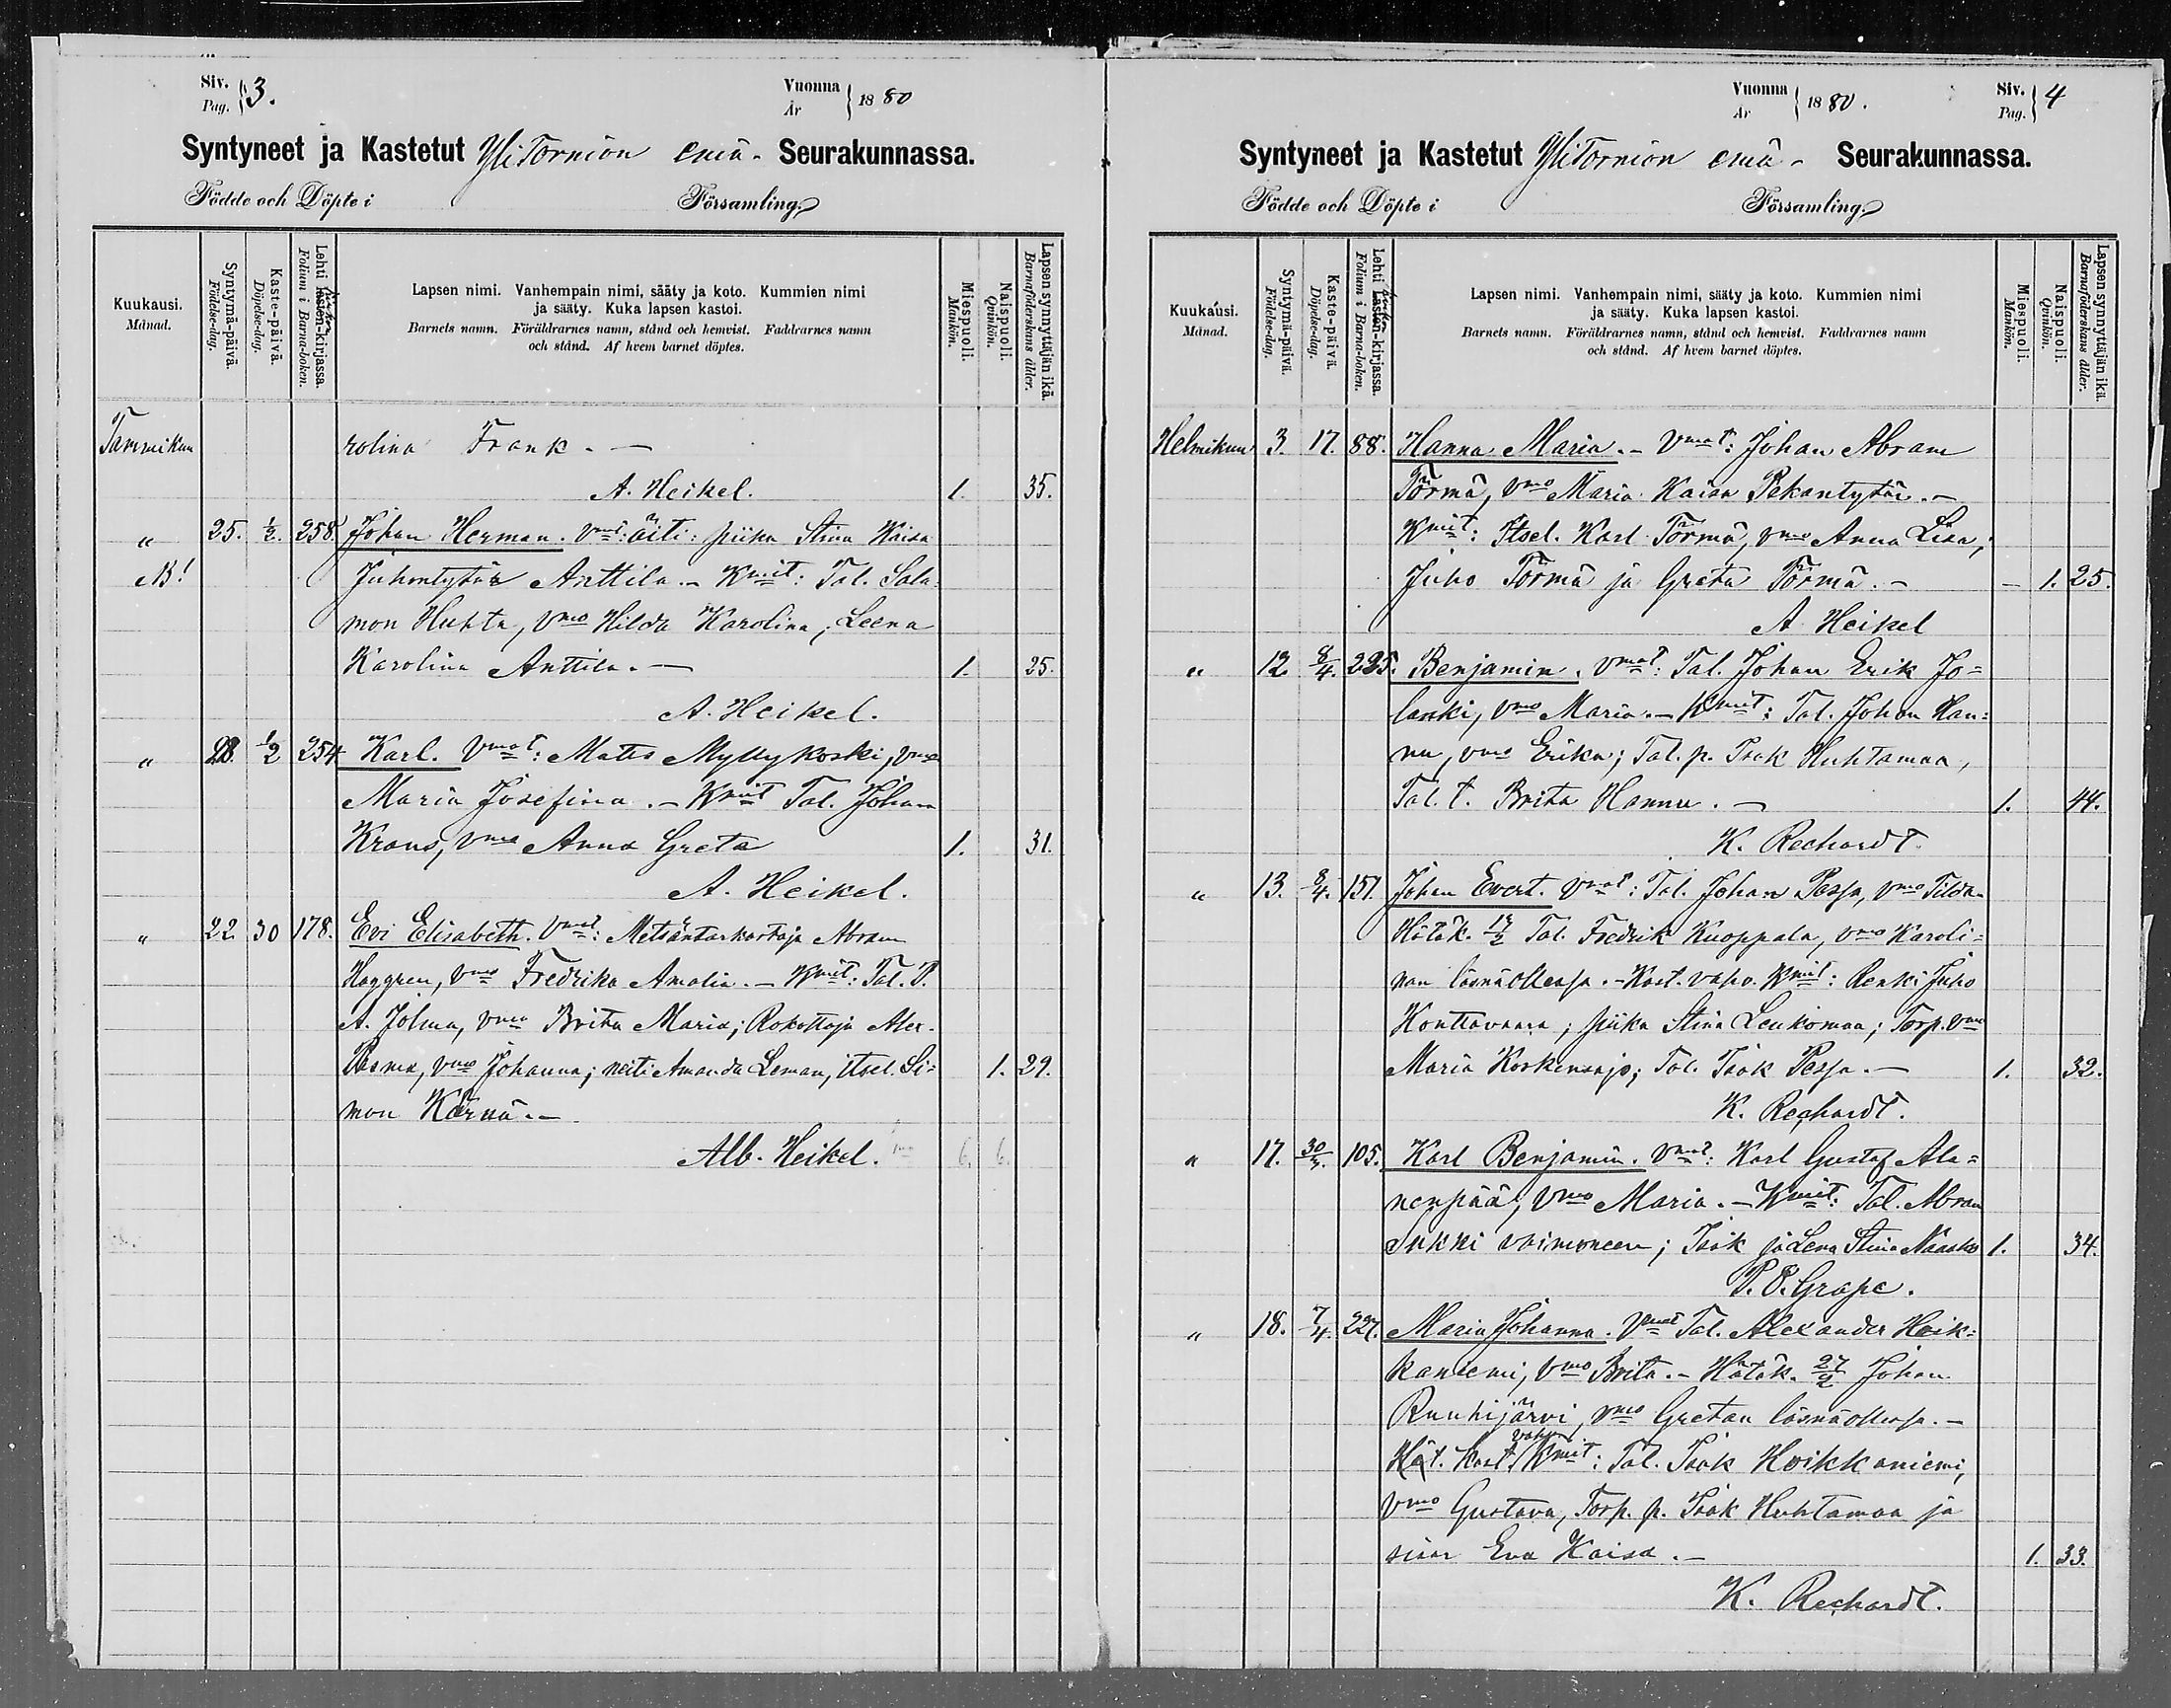 Siv. Pag. 3.
Vuonna År 1880
Syntyneet ja Kastetut YliTornion emä- Seurakunnassa.
Födde och Döpte i Församling.
Kuukausi. Månad.
Syntymä-päivä. Födelse-dag.
Kaste-päivä. Döpelse-dag.
Lehti Lasten-kirjassa. Folium i Barna-boken.
Lapsen nimi. Vanhempain nimi, sääty ja koto. Kummien nimi
ja sääty. Kuka lapsen kastoi.
Barnets namn. Föräldrarnes namn, stånd och hemvist. Faddrarnes namn
och stånd. Af hvem barnet döptes.
Miespuoli. Mankön.
Naispuoli. Qvinkön.
Lapsen synnyttäjän ikä. Barnaföderskans ålder.
Tammikun rolina Frank. —
A. Heikel. 1. 35.
" 25. 1/2. 258. Johan Herman. Vmt: äiti: piika Stina Kaisa
Juhontytär Anttila. - Kmit: Tal. Sala=
mon Huhta, vmo Hilda Karolina; Leena
Karolina Anttila. — 1. 25.
A. Heikel.
" 28. 1/2 254 Karl. Vmat: Matts Myllykoski, vmo
Maria Josefina. - Kmit Tal. Johan
Krans, vmo Anna Greta 1. 31.
A. Heikel.
" 22. 30 178. Evi Elisabeth. Vmat: Metsäntarkastaja Abram
Haggren, vmo Fredrika Amalia. - Kmit: Tal. P.
A. Jolma, vmo Brita Maria; Rokottaja Alex.
vmo Johanna; neiti Amanda Leman, itsel. Si= 1. 29.
mon Kärnä. -
Alb. Heikel. 6. 6.
Vuonna År 1880.
Siv. Pag. 4
Syntyneet ja Kastetut YliTornion emä- Seurakunnassa.
Födde och Döpte i Församling.
Kuukausi. Månad.
Syntymä-päivä. Födelse-dag.
Kaste-päivä. Döpelse-dag.
Lehti Lasten-kirjassa. Folium i Barna-boken.
Lapsen nimi. Vanhempain nimi, sääty ja koto. Kummien nimi
ja sääty. Kuka lapsen kastoi.
Barnets namn. Föräldrarnes namn, stånd och hemvist. Faddrarnes namn
och stånd. Af hvem barnet döptes.
Miespuoli. Mankön.
Naispuoli. Qvinkön.
Lapsen synnyttäjän ikä. Barnaföderskans ålder.
Helmikun 3. 17. 88. Hanna Maria. - Vmat: Johan Abram
Törmä, vmo Maria Kaisa Pekantytär. -
Kmit: Itsel. Karl Törmä, vmo Anna Liisa;
Juho Törmä ja Greta Törmä. - - 1. 25.
A. Heikel
" 12. 8/4. 225. Benjamin. Vmat: Tal. Johan Erik Jo=
lanki, vmo Maria. - Kmit: Tal. Johan Han=
nu, vmo Erika; Tal. p. Isak Huhtamaa,
Tal. t. Brita Hannu. — 1. 44.
K. Rechardt.
" 13. 8/4. 151. Johan Evert. Vmat: Tal. Johan Pessa, vmo Tilda.
Hätäk. 17/2 Tal. Fredrik Kuoppala, vmo Karoli=
nan läsnäollessa. - Kast. vahv. Kmit: Renki Juho
Konttavaara; piika Stina Leukomaa; Torp. vmo
Maria Koskensajo; Tal. Isak Pessa. — 1. 32.
K. Rechardt.
" 17. 30/3. 105. Karl Benjamin. Vmat: Karl Gustaf Ala=
nenpää, vmo Maria. - Kmit: Tal. Abram
Sukki vaimoneen; Isak ja Lena Stina 1. 34.
P. E. Grape.
" 18. 7/4. 227. Maria Johanna. Vmat Tal. Alexander Hoik=
kaniemi, vmo Brita. - Hätäk. 27/2 Johan
Ruuhijärvi, vmo Gretan läsnäollessa. -
Hät. Kast. vahv. Kmit: Tal. Isak Hoikkaniemi,
vmo Gustava, Torp. p. Isak Huhtamaa ja
sisar Eva Kaisa. - 1. 33.
K. Rechardt.